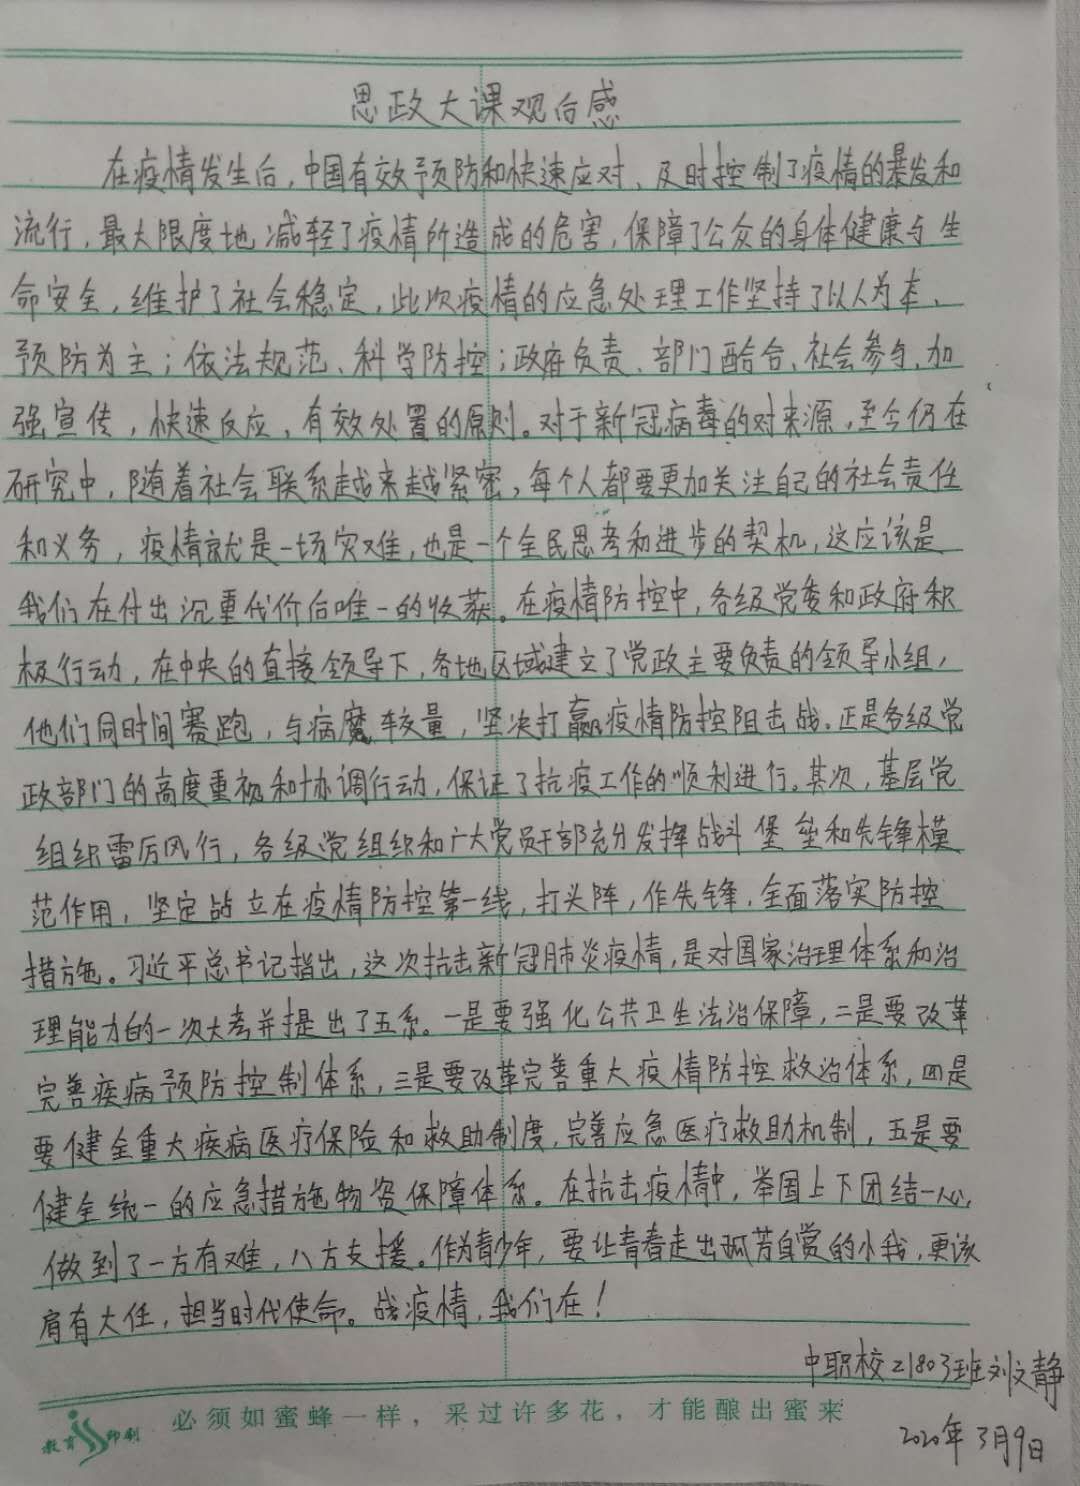 思政大课观后感
在疫情发生后，中国有效预防和快速应对、及时控制了疫情的暴发和
流行，最大限度地减轻了疫情所造成的危害，保障了公众的身体健康与生
命安全，维护了社会稳定，此次疫情的应急处理工作坚持了以人为本、
预防为主；依法规范、科学防控；政府负责、部门配合、社会参与、加
强宣传，快速反应，有效处置的原则。对于新冠病毒的对来源，至今仍在
研究中，随着社会联系越来越紧密，每个人都要更加关注自己的社会责任
和义务，疫情就是一场灾难，也是一个全民思考和进步的契机，这应该是
我们在付出沉重代价后唯一的收获。在疫情防控中，各级党委和政府积
极行动，在中央的直接领导下，各地区域建立了党政主要负责的领导小组，
他们同时间赛跑，与病魔较量，坚决打赢疫情防控阻击战。正是各级党
政部门的高度重视和协调行动，保证了抗疫工作的顺利进行。其次，基层党
组织雷厉风行，各级党组织和广大党员干部充分发挥战斗堡垒和先锋模
范作用，坚定站立在疫情防控第一线，打头阵，作先锋，全面落实防控
措施。习近平总书记指出，这次抗击新冠肺炎疫情，是对国家治理体系和治
理能力的一次大考并提出了五系。一是要强化公共卫生法治保障，二是要改革
完善疾病预防控制体系，三是要改革完善重大疫情防控救治体系，四是
要健全重大疾病医疗保险和救助制度，完善应急医疗救助机制，五是要
健全统一的应急措施物资保障体系。在抗击疫情中，举国上下团结一心，
做到了一方有难，八方支援。作为青少年，要让青春走出孤芳自赏的小我，更该
肩有大任，担当时代使命。战疫情，我们在！
中职校21803班刘文静
2020年3月9日
教育印刷
必须如蜜蜂一样，采过许多花，才能酿出蜜来